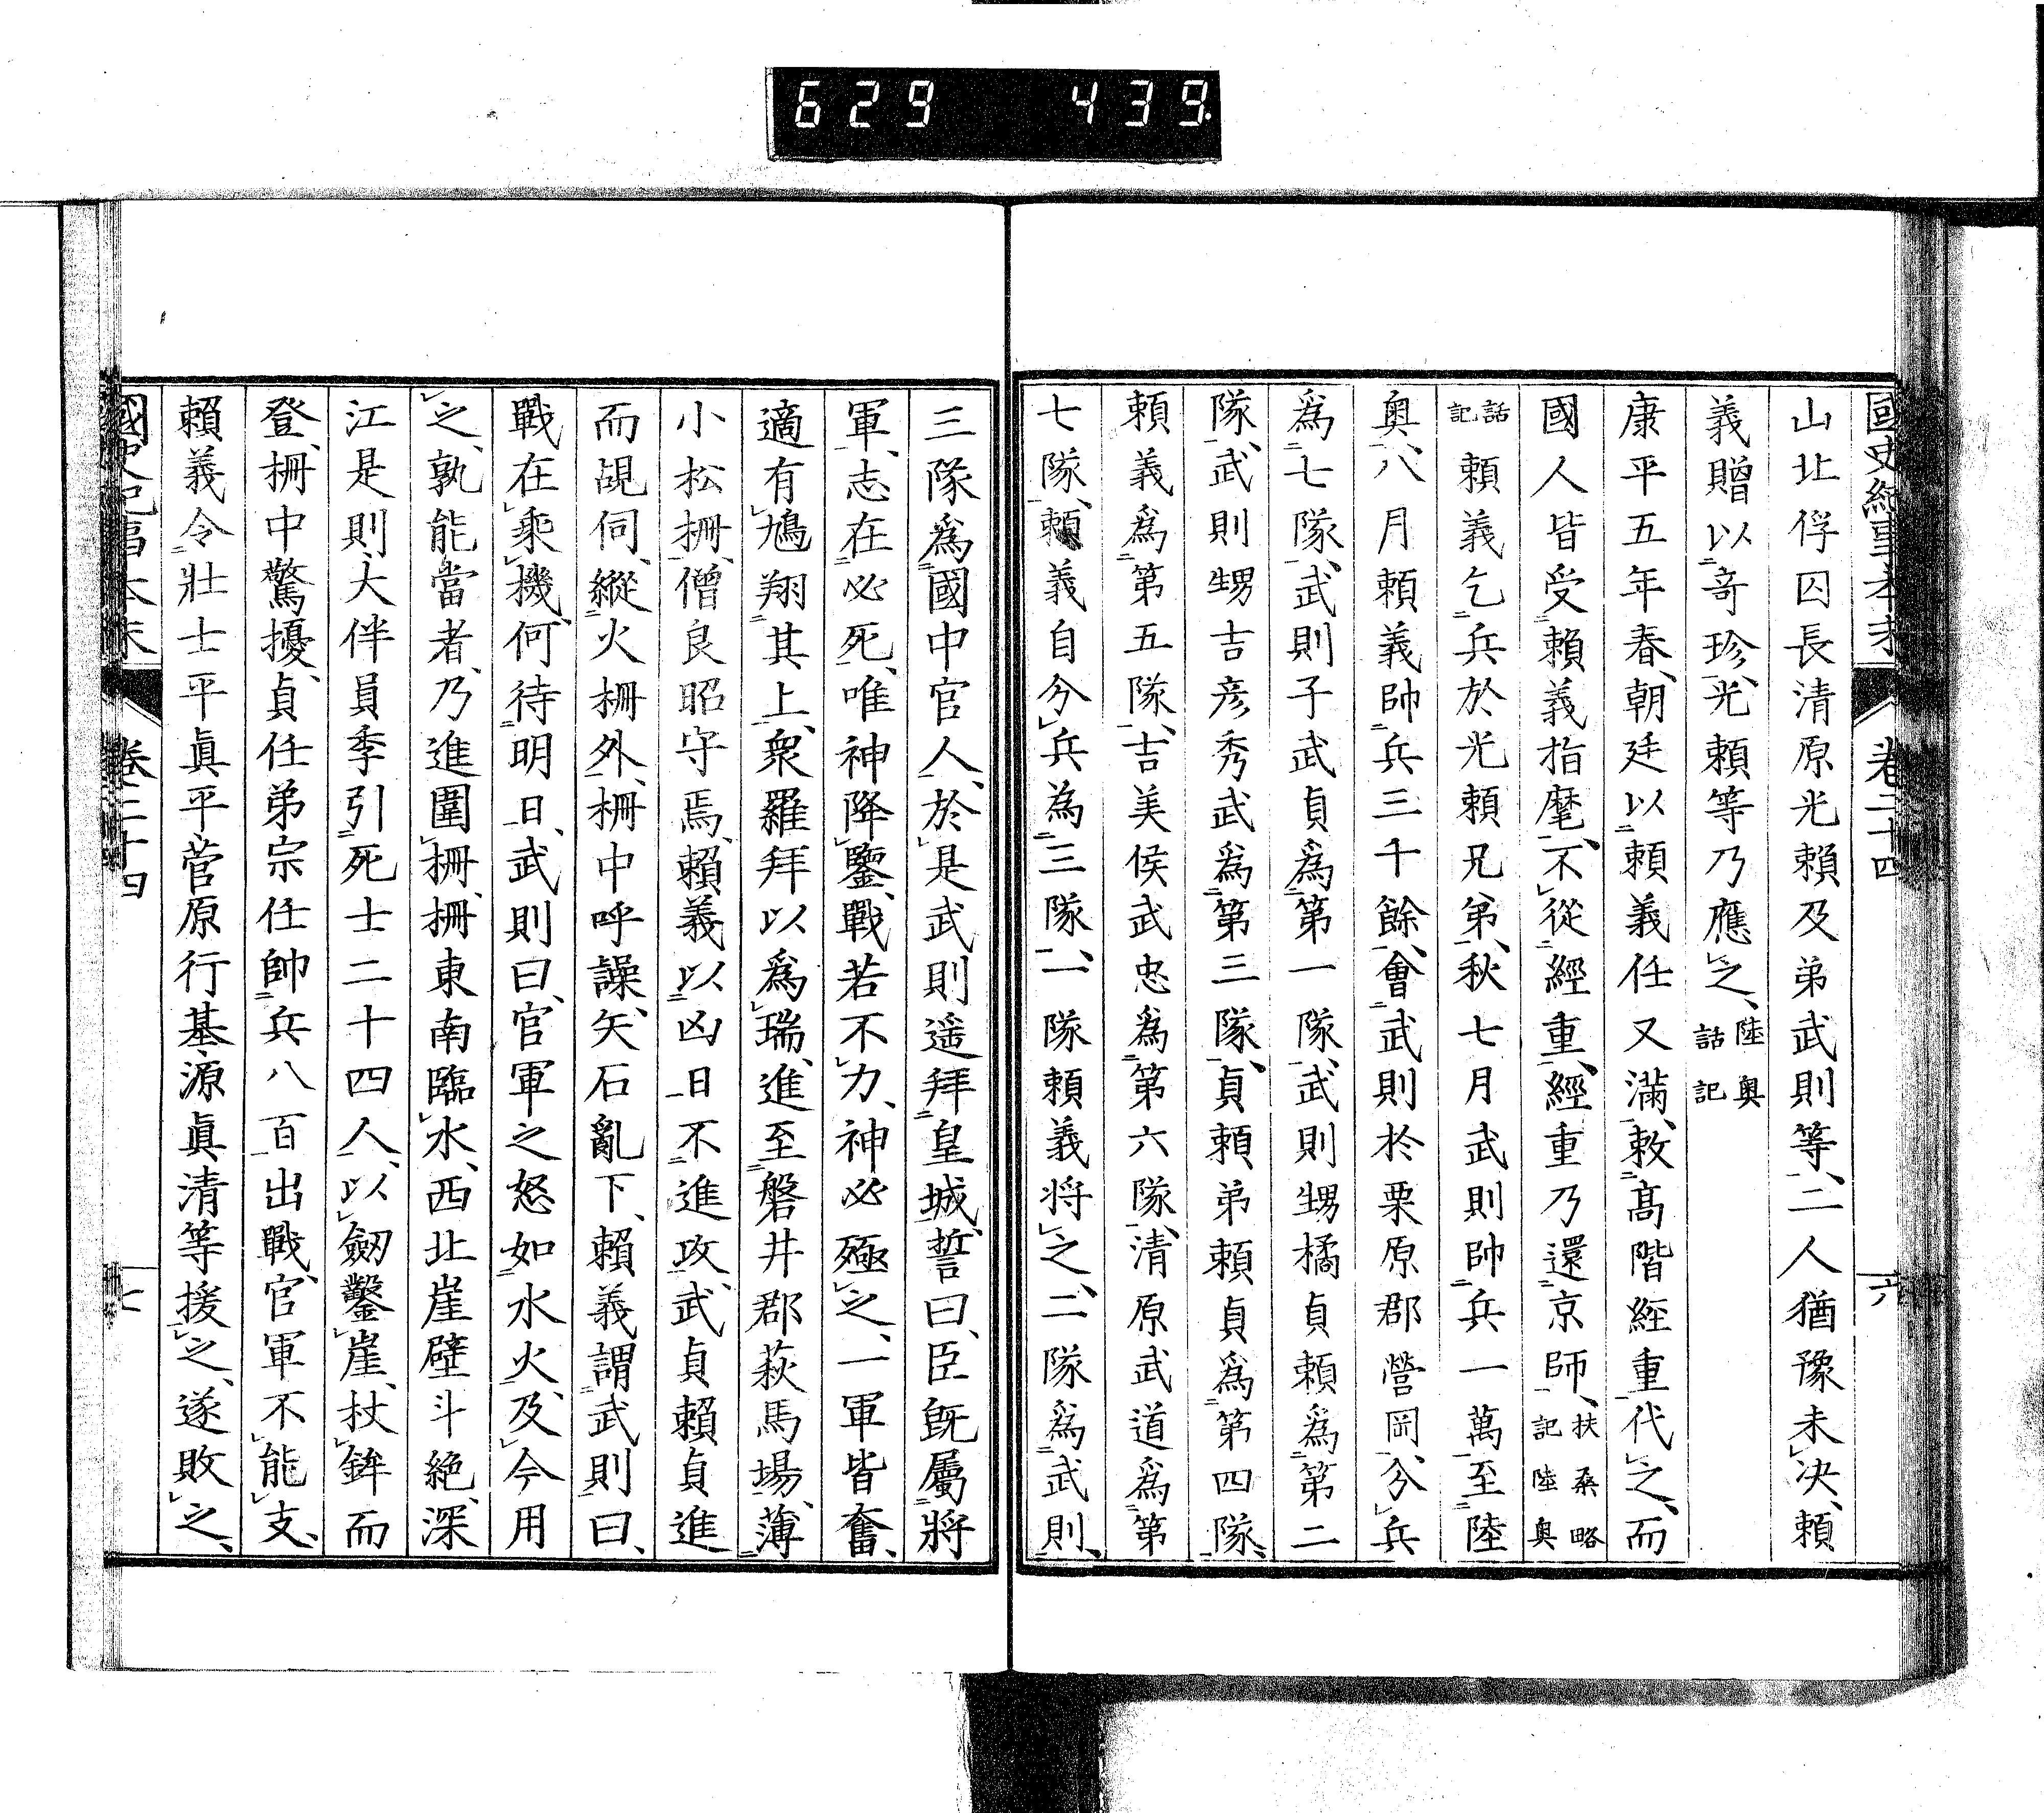 629 439
國史紀事本末 卷二十四 六
山北俘囚長清原光頼及弟武則等、二人猶豫未决、頼
義贈以奇珍、光頼等乃應之、陸奥話記
康平五年春、朝廷以頼義任又滿、敕髙階經重代之、而
國人皆受頼義指麾、不從經重、經重乃還京師、扶桑略記陸奥
話記頼義乞兵於光頼兄弟、秋七月武則帥兵一萬至陸
奥、八月頼義帥兵三千餘、會武則於栗原郡營岡、分兵
爲七隊、武則子武貞爲第一隊、武則甥橘貞頼爲第二
隊、武則甥吉彦秀武爲第三隊、貞頼弟頼貞爲第四隊、
頼義爲第五隊、吉美侯武忠爲第六隊、清原武道爲第
七隊、頼義自分兵為三隊、一隊頼義将之、二隊爲武則、
三隊爲國中官人、於是武則遥拜皇城、誓曰、臣既屬將
軍、志在必死、唯神降鑒、戰若不力、神必殛之、一軍皆奮、
適有鳩翔其上、衆羅拜以爲瑞、進至磐井郡萩馬場、薄
小松柵、僧良昭守焉、頼義以凶日不進攻、武貞頼貞進
而覘伺、縱火柵外、柵中呼譟、矢石亂下、頼義謂武則曰、
戰在乘機、何待明日、武則曰、官軍之怒如水火、及今用
之、孰能當者、乃進圍柵、柵東南臨水、西北崖壁斗絶、深
江是則、大伴員季引死士二十四人、以劒鑿崖、杖鉾而
登、柵中驚擾、貞任弟宗任帥兵八百出戰、官軍不能支、
頼義令壯士平眞平菅原行基源眞清等援之、遂敗之、
國史紀事本末 卷二十四 七